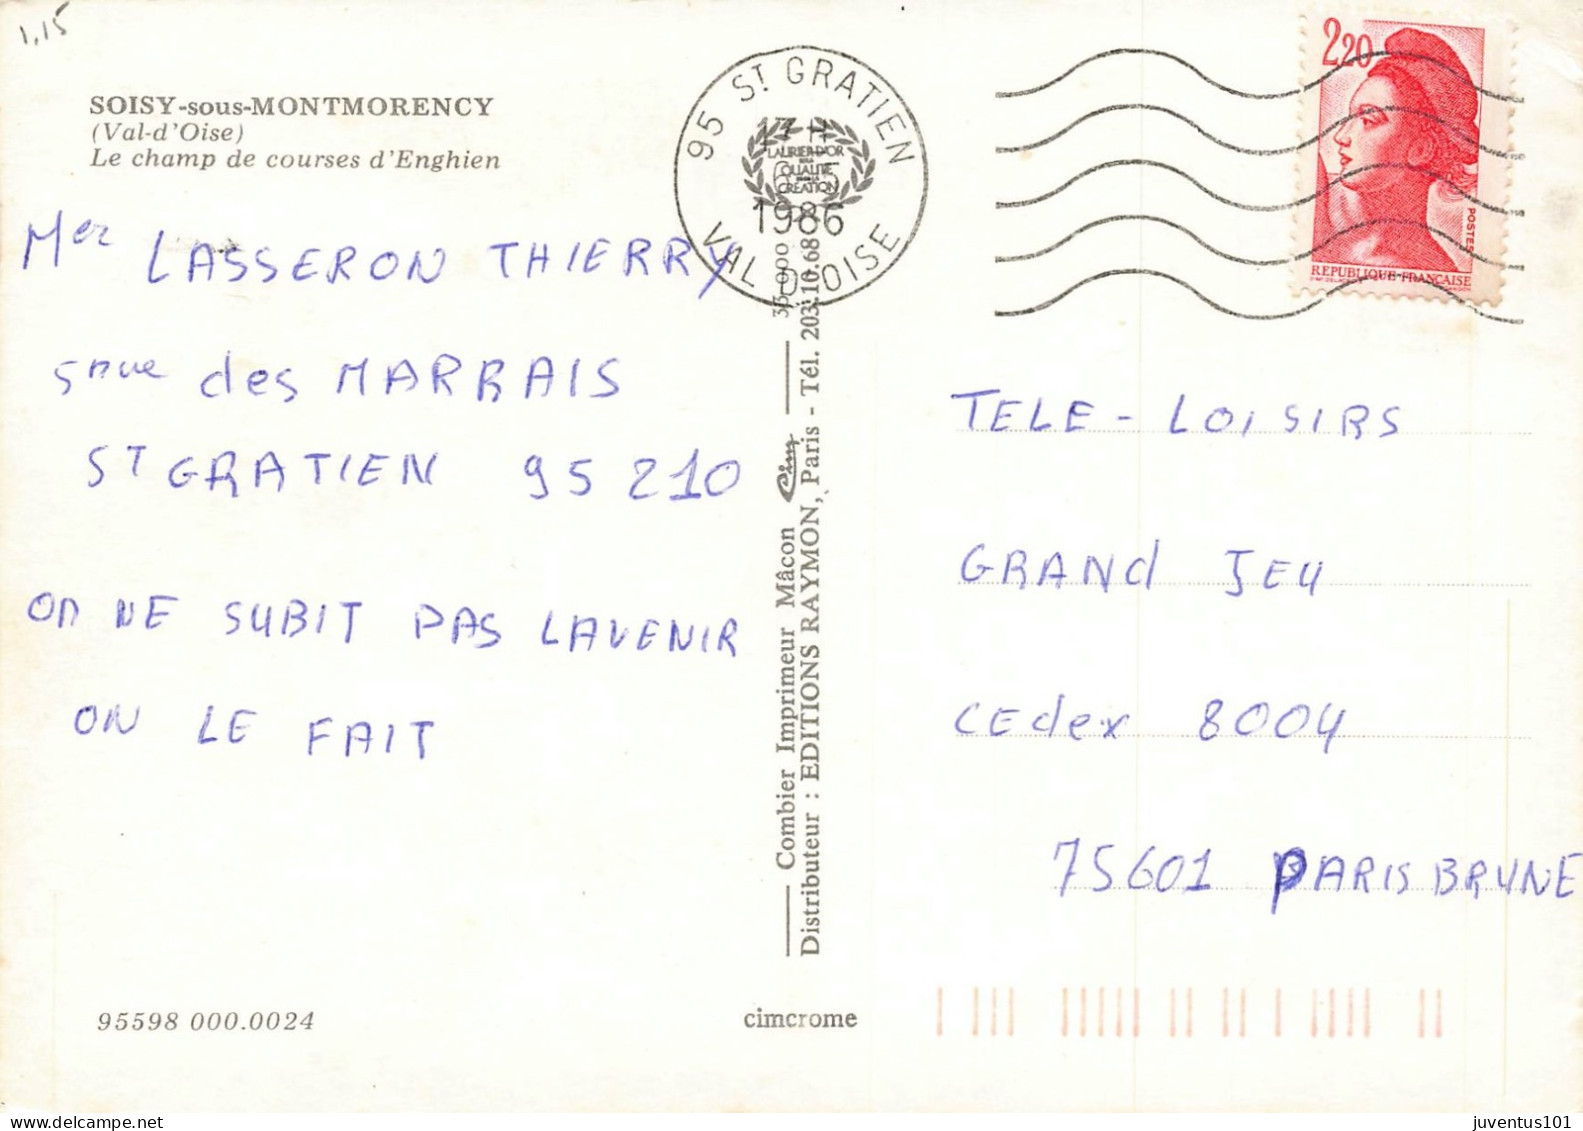 1,15
SOISY-sous-MONTMORENCY
(Val-d'Oise)
Le champ de courses d'Enghien
Mer LASSERON THIERRY
5 rue des MARRAIS
ST GRATIEN 95210
ON NE SUBIT PAS LAVENIR
ON LE FAIT
95598 000.0024
cimcrome
Combier Imprimeur Mâcon Cim
Distributeur : EDITIONS RAYMON, Paris - Tél. 203.10.68
95 ST GRATIEN
17 H
LAURIER D'OR
QUALITE
CREATION
6-5
1986
VAL D'OISE
2,20
POSTES
REPUBLIQUE-FRANÇAISE
TELE - LOISIRS
GRANd JEU
CEdex 8004
75601 PARIS BRUNE
juventus101